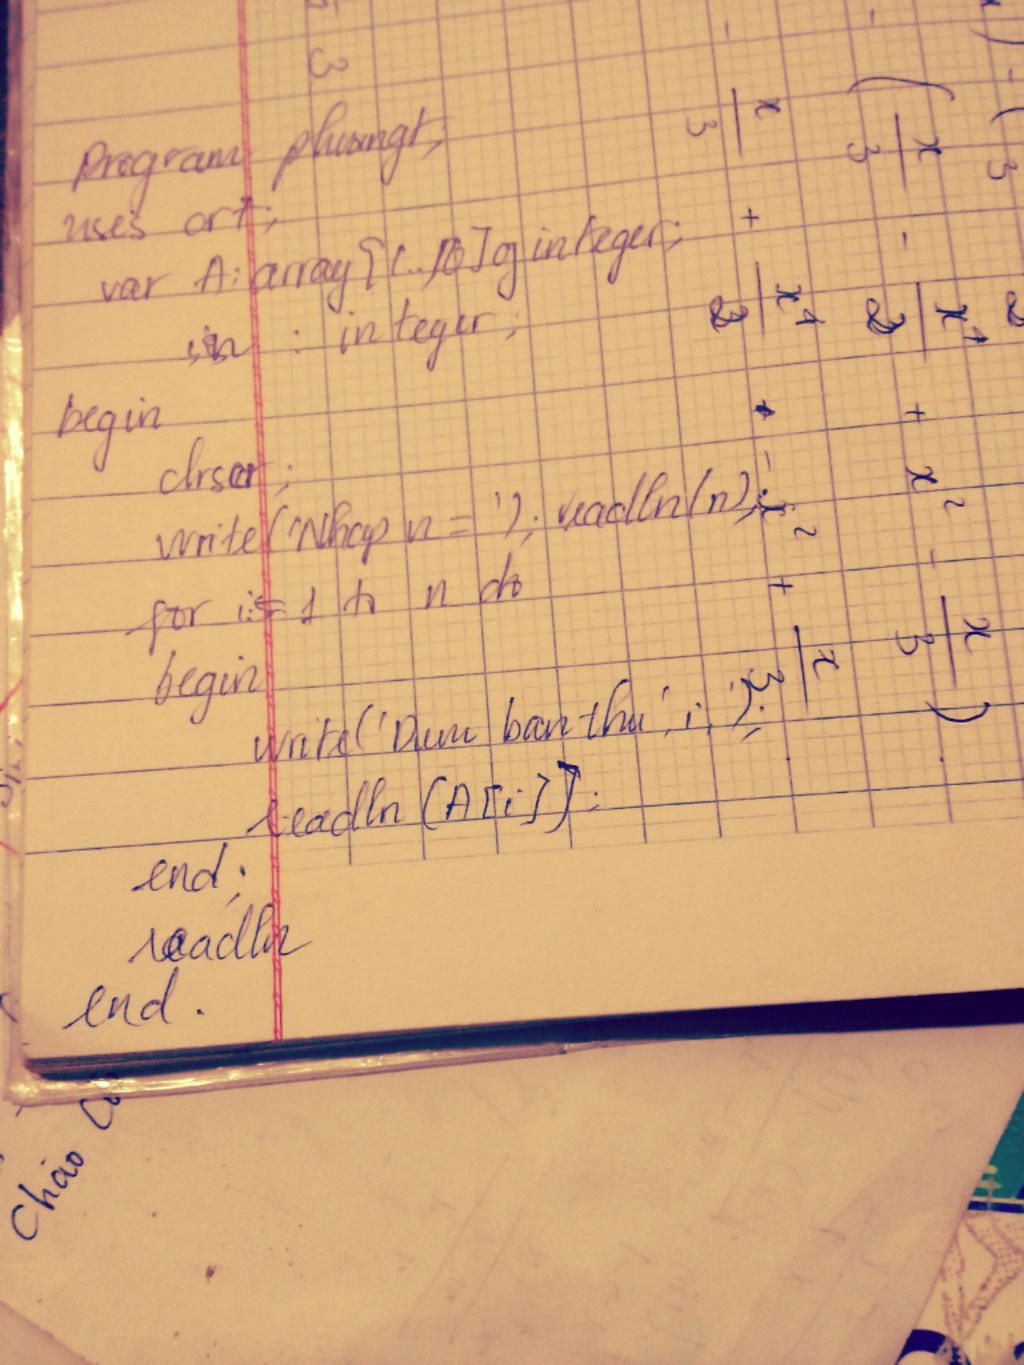 Program phuongt;
uses crt;
var A: array[1..10] of integer;
i,n : integer;
begin
clrscr;
write('Nhap n = '); readln(n);
for i:=1 to n do
begin
write('Dum ban thu', i, ');
readln(A[i]);
end;
readln
end.
3
x/3 + x⁴/2 - x² + x/3
- (x/3 - x⁴/2 + x² - x/3)
Chào